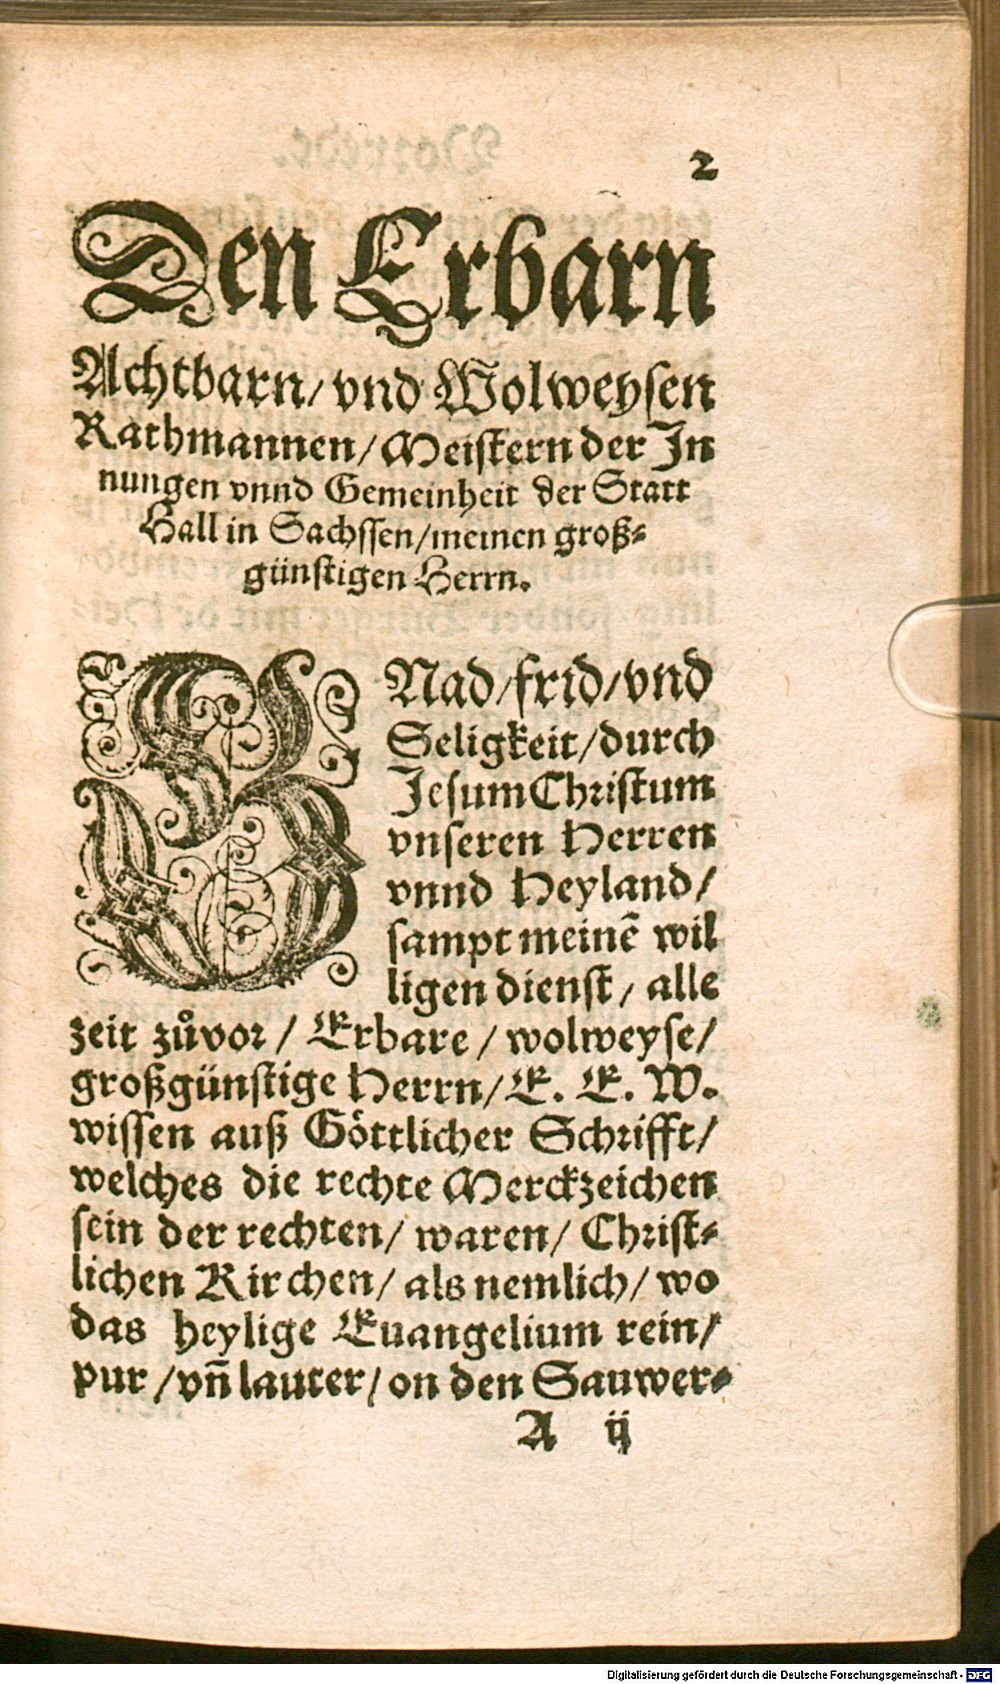 2
Den Erbarn
Achtbarn/ vnd Wolweysen
Rathmannen/ Meistern der In
nungen vnnd Gemeinheit der Statt
Hall in Sachssen/ meinen groß-
günstigen Herrn.
GNad/ frid/ vnd
Seligkeit/ durch
Jesum Christum
vnseren Herren
vnnd Heyland/
sampt meinē wil
ligen dienst/ alle
zeit zůvor/ Erbare/ wolweyse/
großgünstige Herrn/ E. E. W.
wissen auß Göttlicher Schrifft/
welches die rechte Merckzeichen
sein der rechten/ waren/ Christ-
lichen Kirchen/ als nemlich/ wo
das heylige Euangelium rein/
pur/ vñ lauter/ on den Sauwer-
A ij
Digitalisierung gefördert durch die Deutsche Forschungsgemeinschaft - DFG